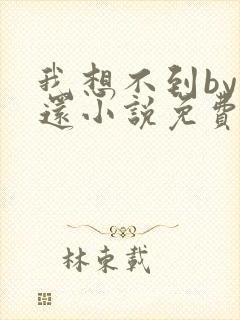 我想不到by
還小說免費
林東載